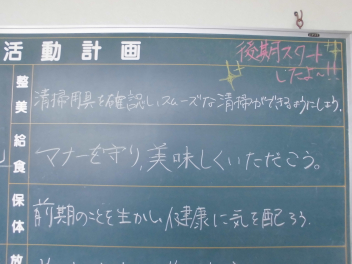 活動計画
後期スタート
したよ〜!!
整美
清掃用具を確認し、スムーズな清掃ができるようにしよう。
給食
マナーを守り、美味しくいただこう。
保体
前期のことを生かし、健康に気を配ろう。
放